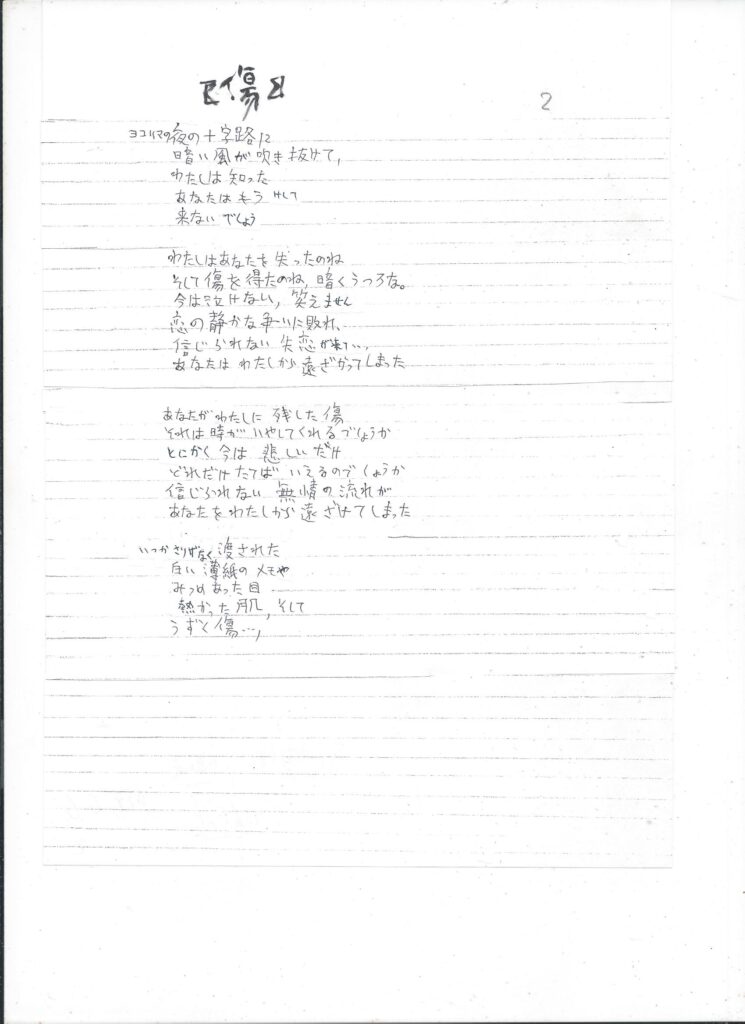 【傷】
2
ヨコハマの夜の十字路に
暗い風が吹き抜けて,
わたしは知った
あなたはもう けして
来ないでしょう
わたしはあなたを失ったのね
そして傷を得たのね,暗くうつろな。
今は泣けない,笑えません
恋の静かな争いに敗れ、
信じられない失恋が来て…,
あなたは わたしから遠ざかってしまった
あなたがわたしに 残した傷
それは時が いやしてくれるでしょうか
とにかく今は 悲しいだけ
どれだけたてば いえるのでしょうか
信じられない 無情の流れが
あなたをわたしから遠ざけてしまった
いつかさりげなく渡された
白い薄紙のメモや
みつめあった目
熱かった肌,そして
うずく傷…,